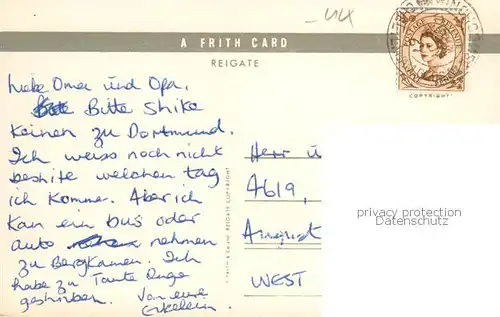 A FRITH CARD
REIGATE
COPYRIGHT
Liebe Oma und Opa.
Bitte Shike
Keinen zu Dortmund.
Ich weiss noch nicht
welchen tag
ich Komme. Aber ich
Kan ein bus oder
auto nehmen
zu Bergkamen. Ich
habe zu Tante Inge
geshriben. Von eure
Enkelein.
REIGATE COPYRIGHT
Herr u
4619,
August
WEST
privacy protection
Datenschutz